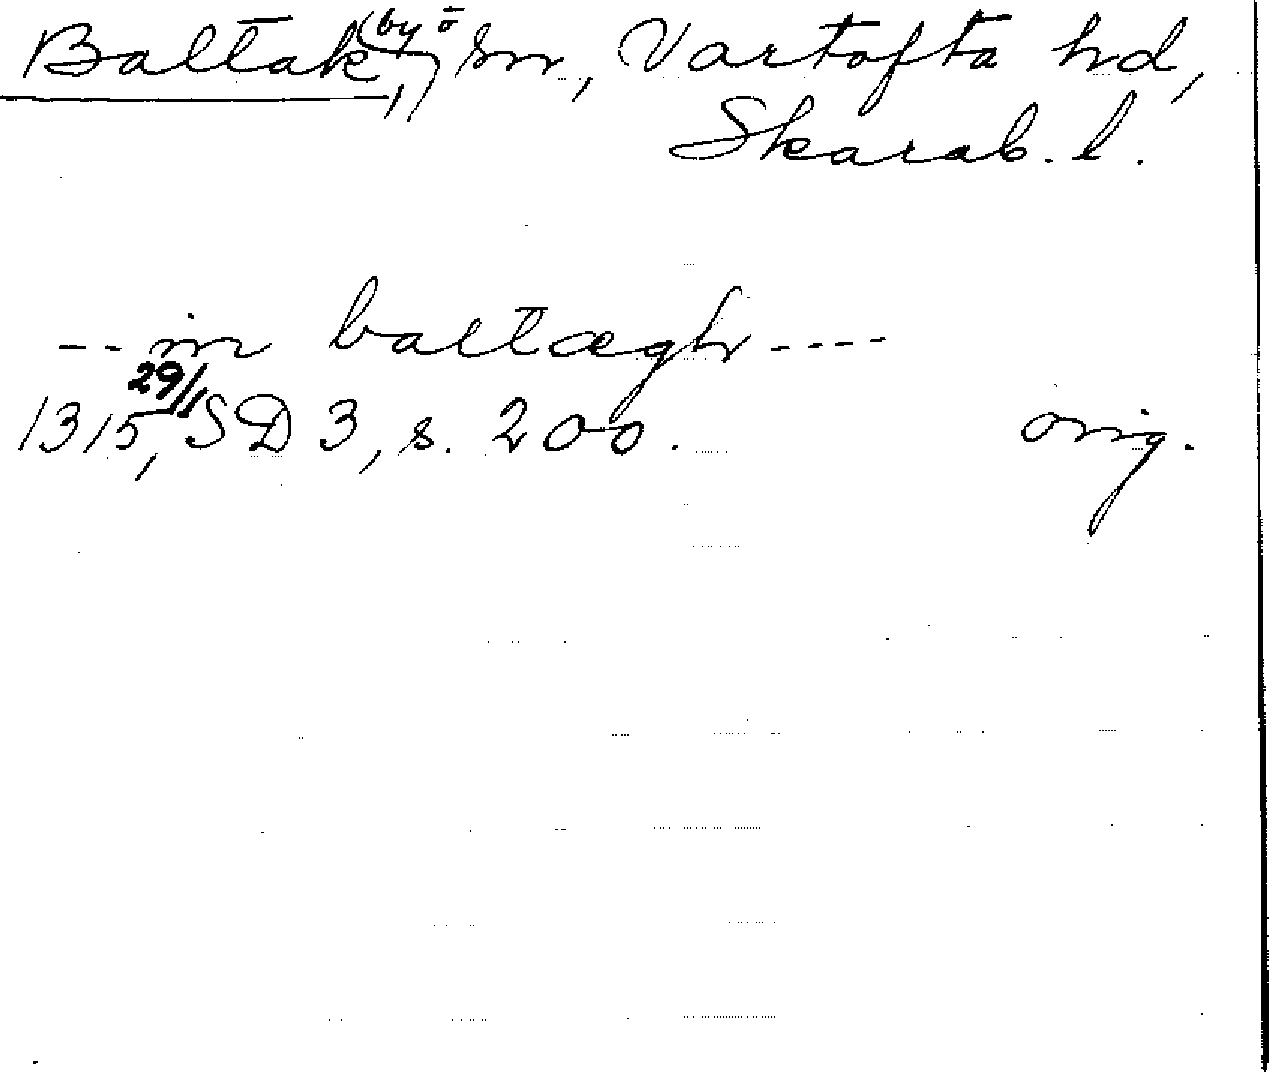 Baltak, by o sn, Vartofta hd,
Skarab. l.
-- in baltægh ----
1315 29/1, SD 3, s. 200. orig.